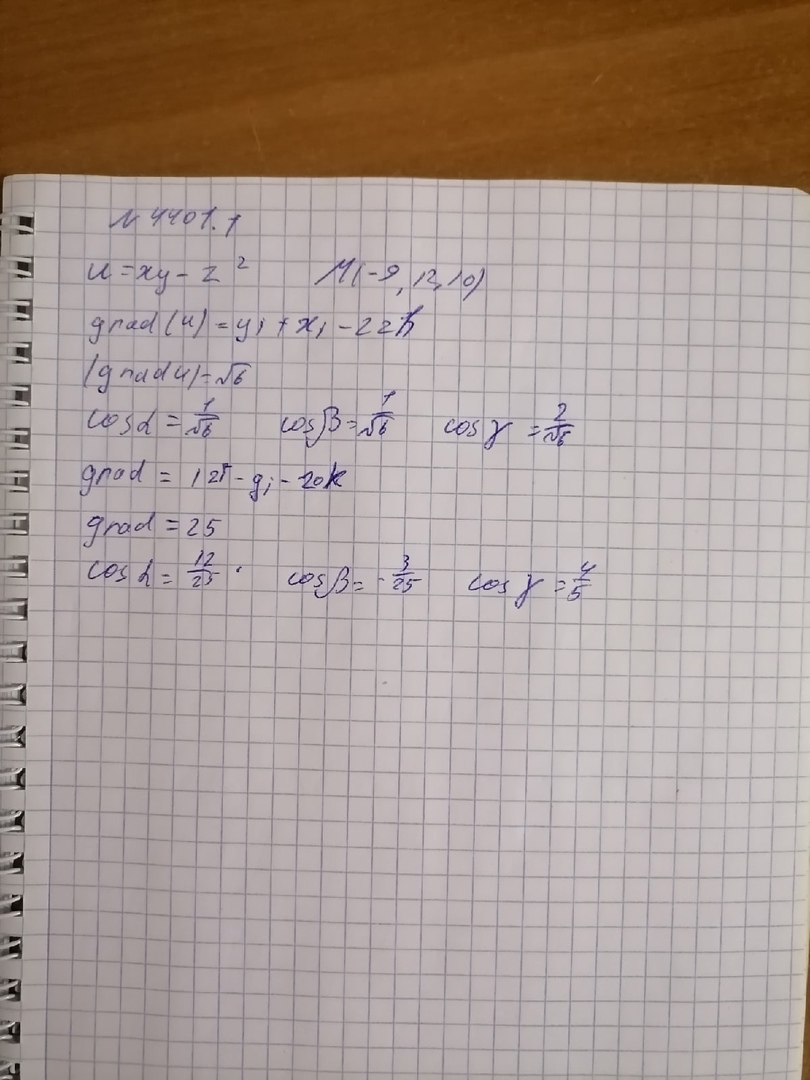 № 4401.1
u = xy - z² M(-9, 12, 10)
grad(u) = yi + xj - 2zk
|grad u| = √6
cos α = 1/√6 cos β = 1/√6 cos γ = 2/√6
grad = 12i - 9j - 20k
grad = 25
cos α = 12/25 . cos β = - 3/25 cos γ = 4/5